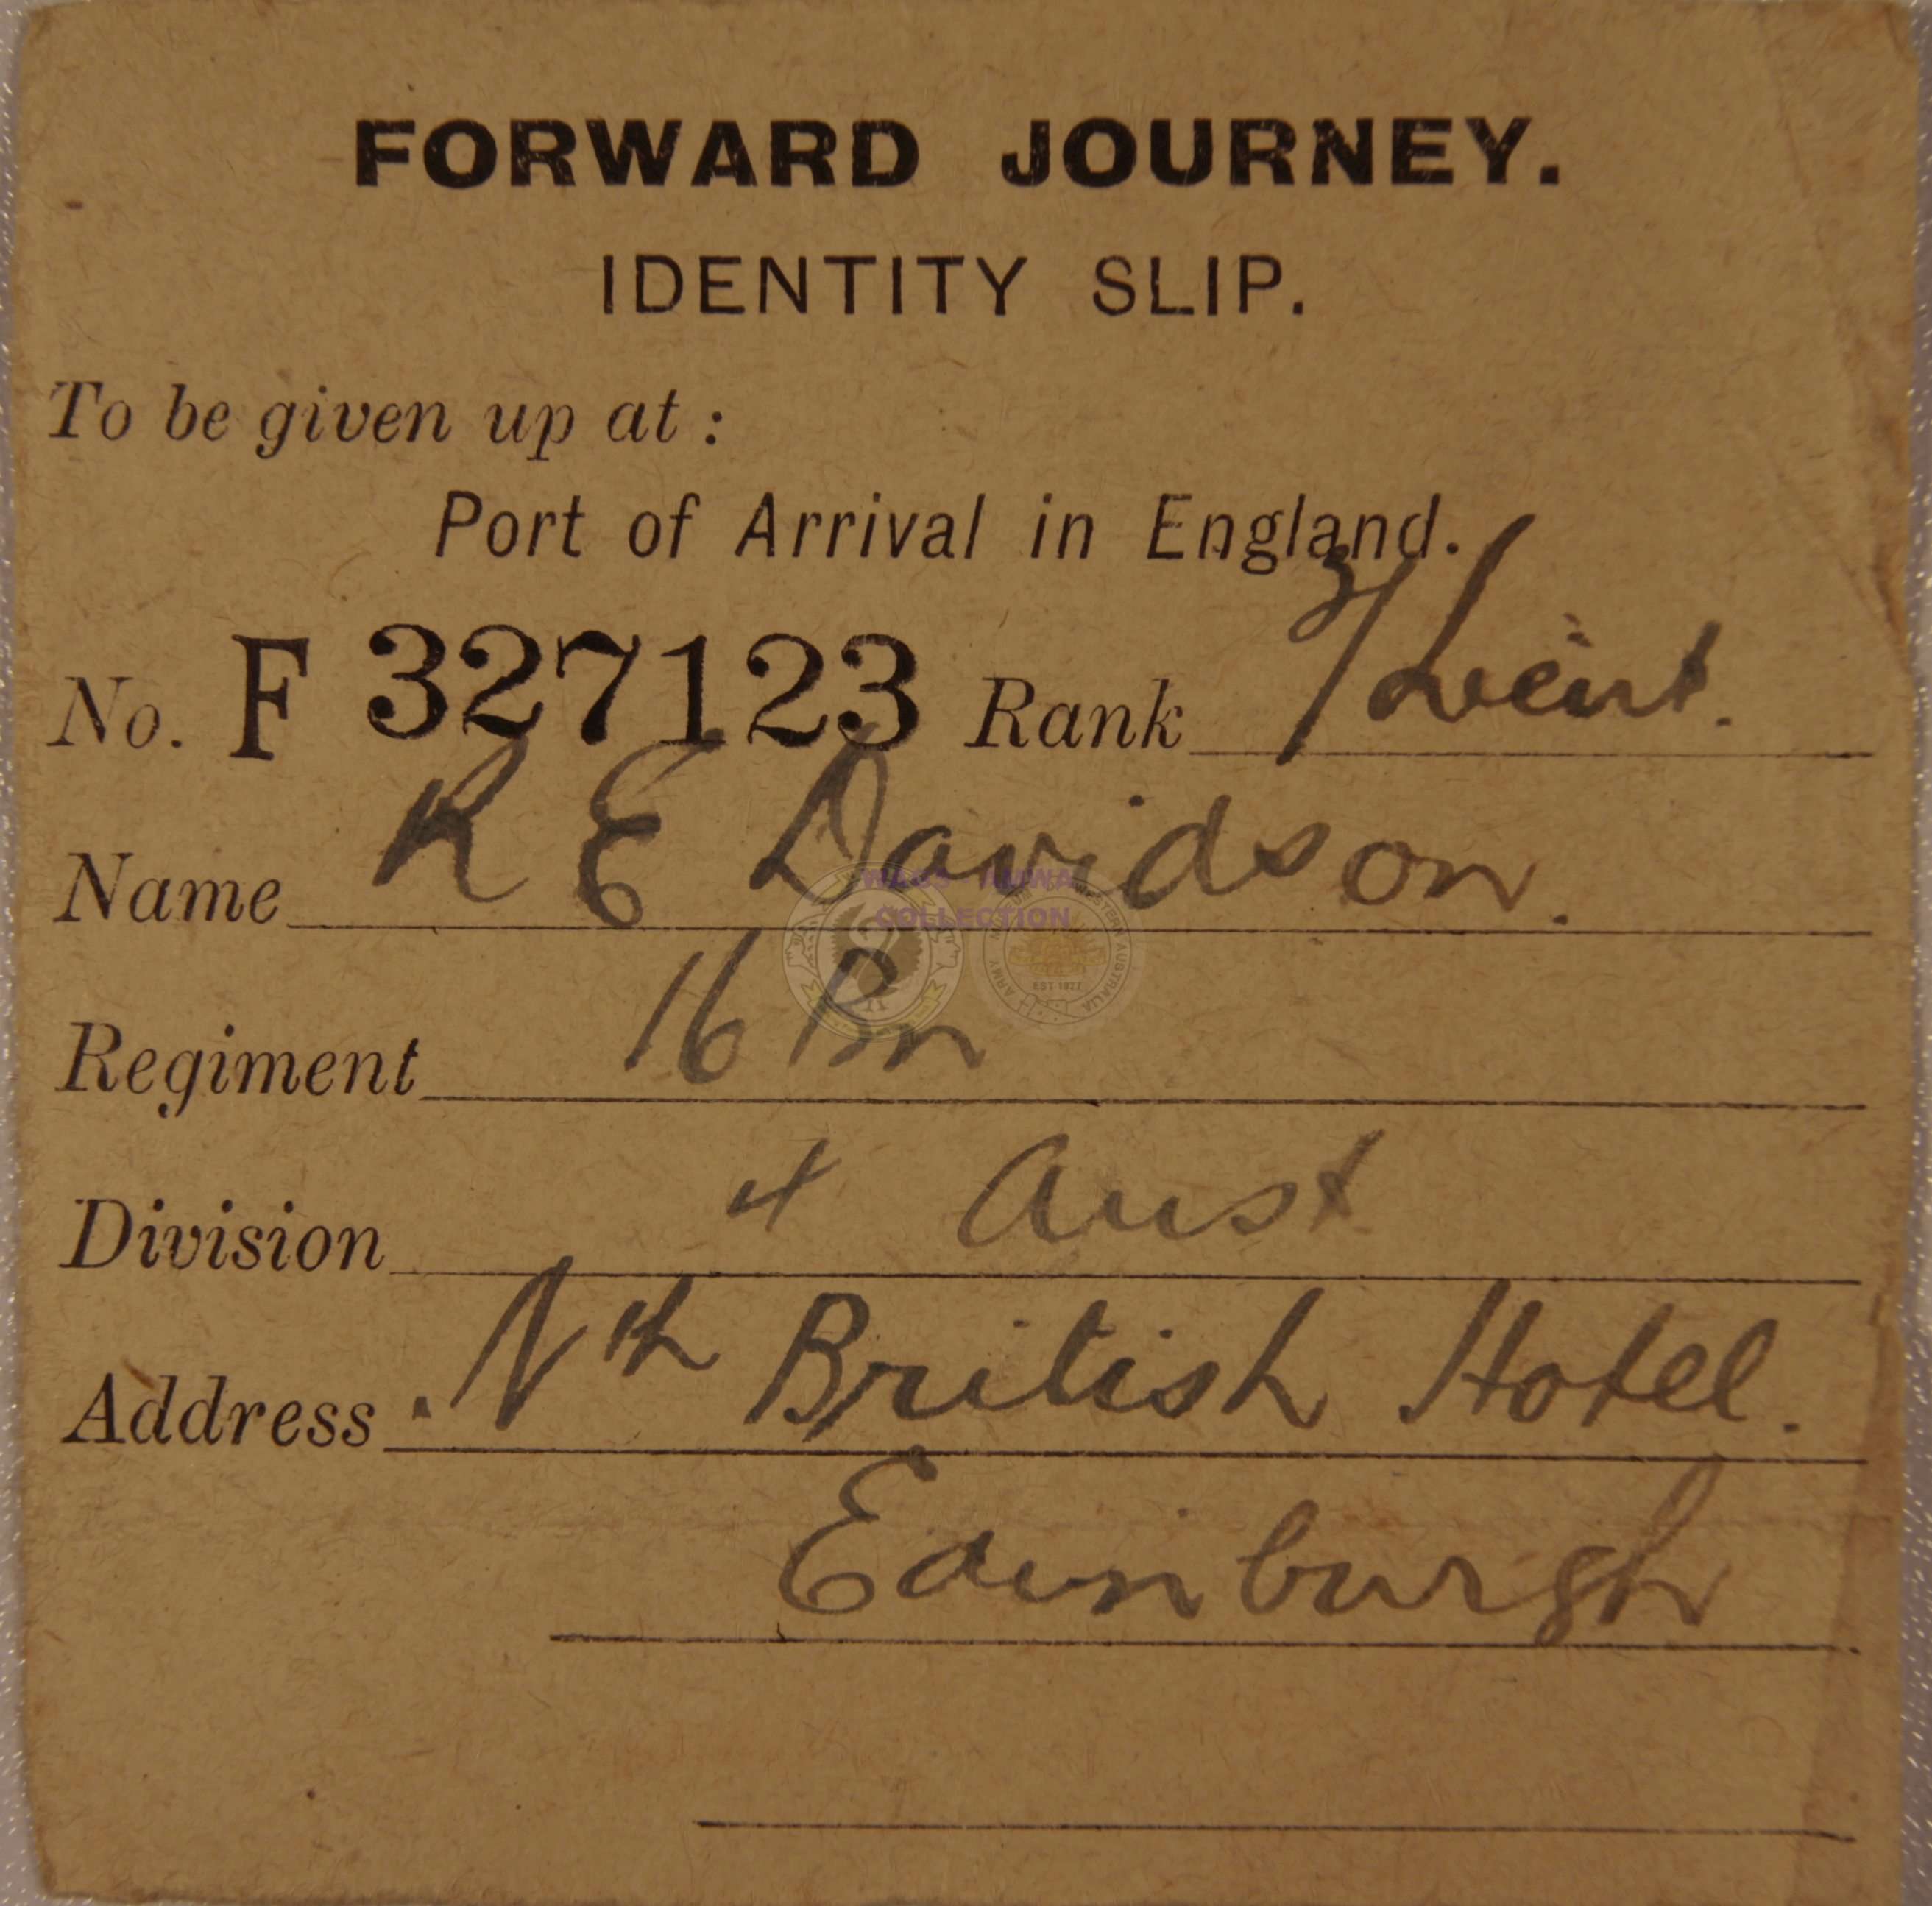 FORWARD JOURNEY.
IDENTITY SLIP.
To be given up at :
Port of Arrival in England.
No. F 327123 Rank 2/Lieut.
Name R E Davidson.
Regiment 16 Bn
Division 4 Aust
Address Nth British Hotel.
Edinburgh
COLLECTION
EST 1977